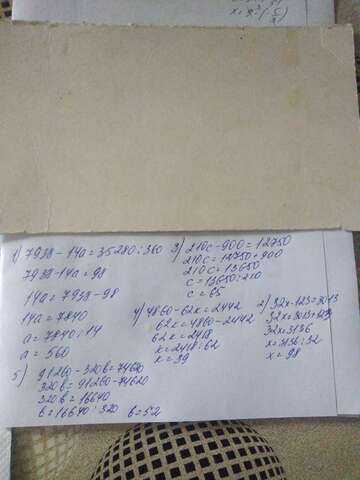 1) 7938 - 14a = 35280 : 360
7938 - 14a = 98
14a = 7938 - 98
14a = 7840
a = 7840 : 14
a = 560
3) 210c - 900 = 12750
210c = 12750 + 900
210c = 13650
c = 13650 : 210
c = 65
4) 4860 - 62к = 2442
62к = 4860 - 2442
62к = 2418
к = 2418 : 62
к = 39
2) 32x - 123 = 3013
32x = 3013 + 123
32x = 3136
x = 3136 : 32
x = 98
5) 91260 - 320в = 74620
320в = 91260 - 74620
320в = 16640
в = 16640 : 320 в = 52